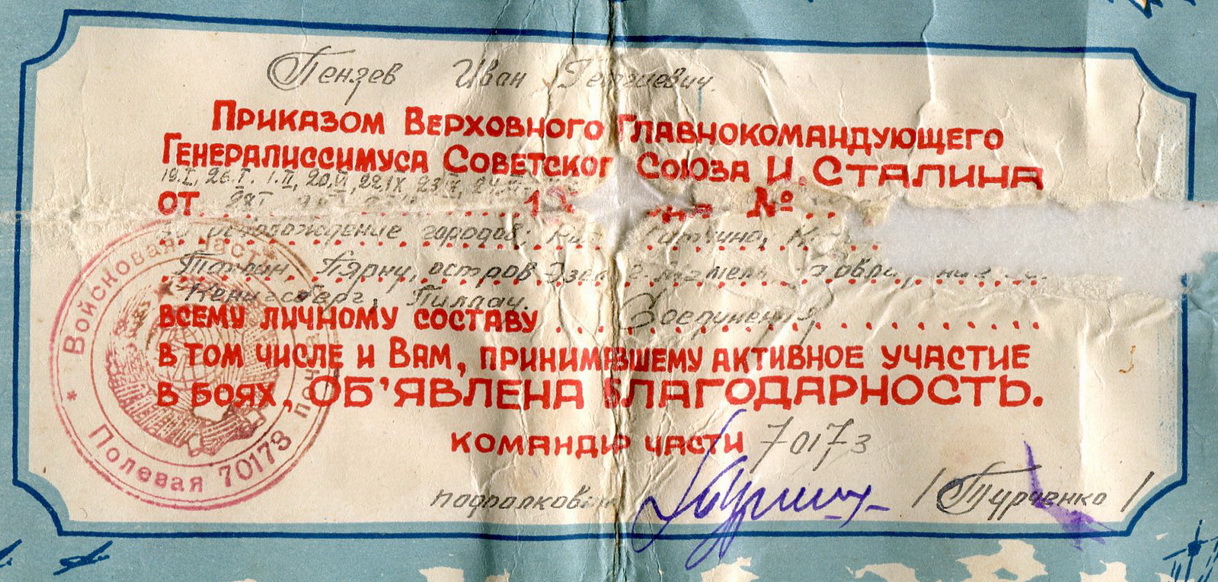 Пензев Иван Георгиевич.
Приказом Верховного Главнокомандующего
Генералиссимуса Советского Союза И. Сталина
19.I, 26.I, 1.II, 20.VI, 22.IX, 23.X,
от 19 №
за освобождение городов:
Таллин, Пярну, остров Эзель, г. Мемель,
Кенигсберг, Пиллау.
всему личному составу Соединения
в том числе и Вам, принимавшему активное участие
в боях, об'явлена благодарность.
командир части 70173
подполковник /Турченко/
* Войсковая часть
Полевая почта 70173